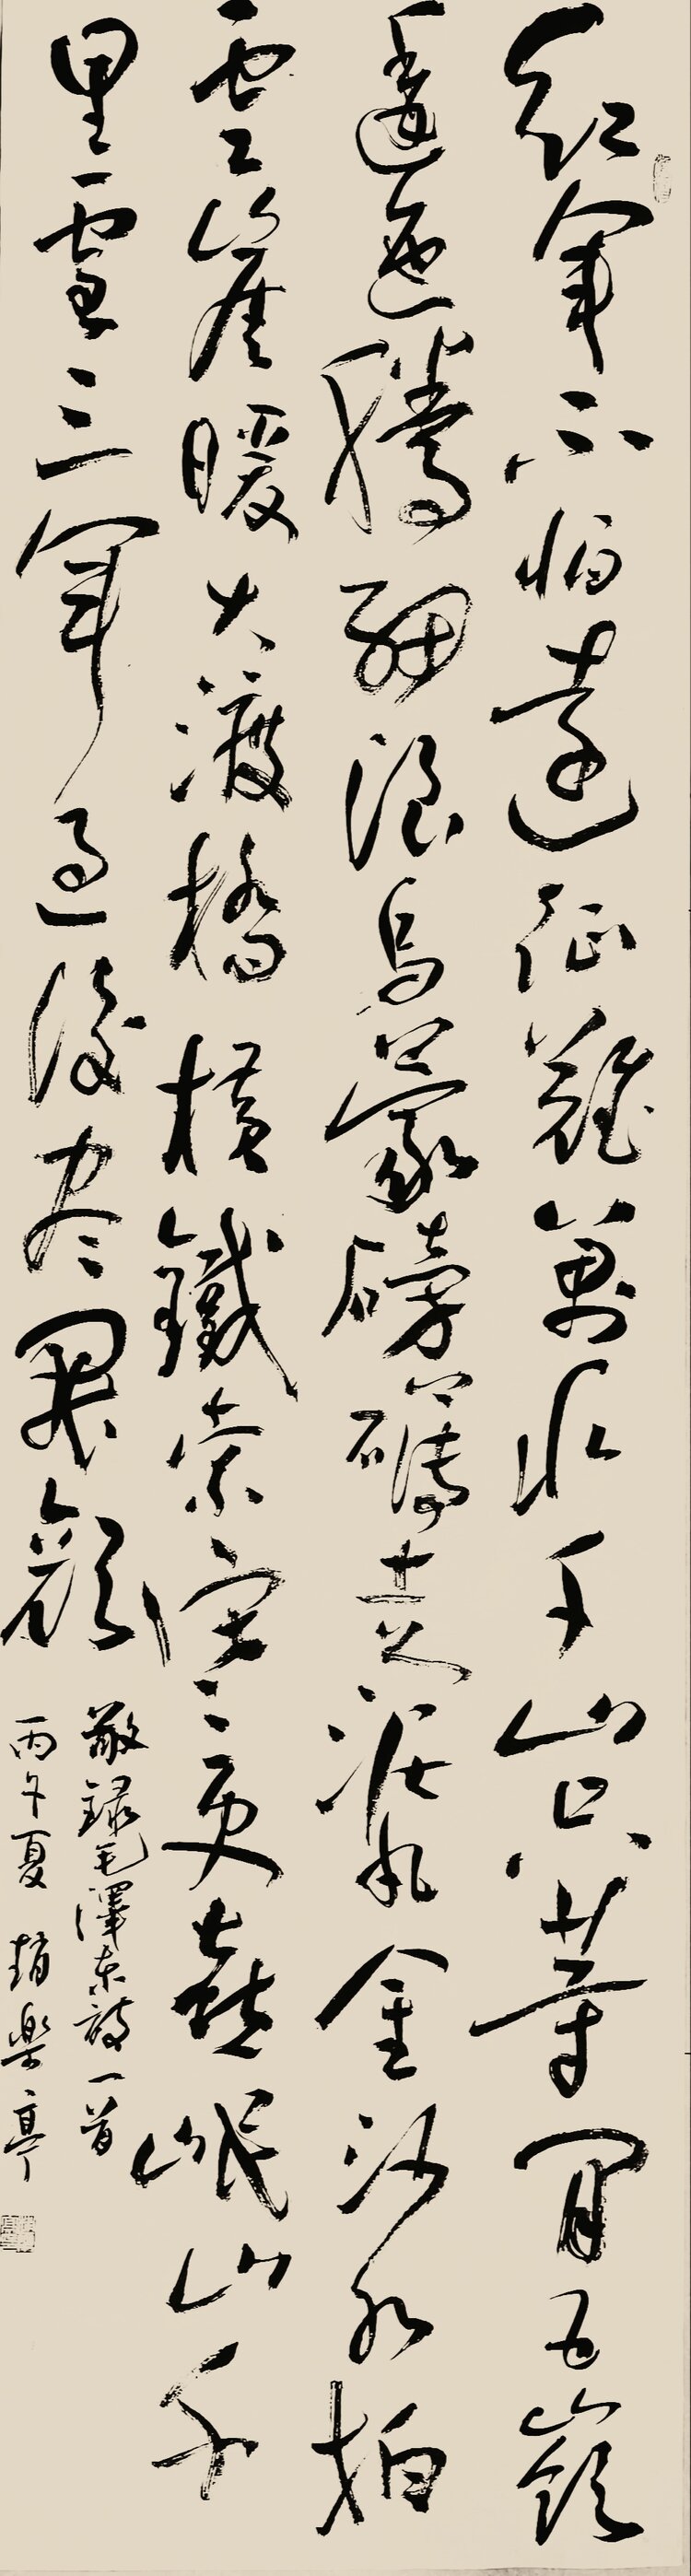 紅軍不怕遠征難萬水千山只等閒五嶺
逶迤騰細浪烏蒙磅礴走泥丸金沙水拍
雲崖暖大渡橋橫鐵索寒更喜岷山千
里雪三軍過後尽開顏
敬錄毛澤東詩一首
丙午夏 趙樂亭